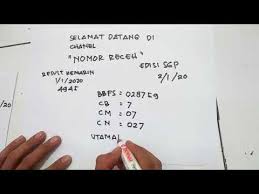 SELAMAT DATANG DI
CHANEL
"NOMOR RECEH"
EDISI SGP
2/1/20
RESULT KEMARIN
1/1/2020
4945
BBFS = 028759
CB = 7
CM = 07
CN = 027
UTAMA
/2020